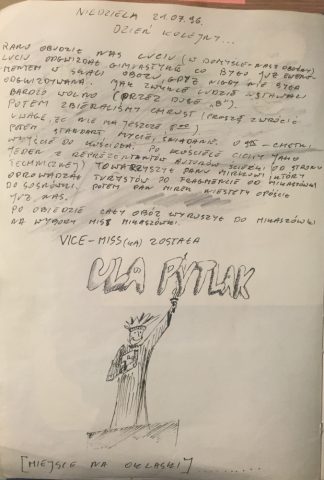 NIEDZIELA 21.07.96.
DZIEŃ KOLEJNY...
RANO OBUDZIŁ NAS LUCIU (W DOMYŚLE - NASZ OBOŹNY)
LUCIU ODGWIZDAŁ GIMNASTYKĘ CO BYŁO JUŻ EWENE-
MENTEM W SKALI OBOZU, GDYŻ NIGDY NIE BYŁA
ODGWIZDYWANA. JAK ZWYKLE LUDZIE WSTAWALI
BARDZO WOLNO (PRZEZ DUŻE „B").
POTEM ZBIERALIŚMY CHRUST (PROSZĘ ZWRÓCIĆ
UWAGĘ, ŻE NIE MA JESZCZE 800)
POTEM STANDART, MYCIE, ŚNIADANIE. O 955 - CHĘTNI
WYJŚCIE DO KOŚCIOŁA. PO KOŚCIELE CICHY JAKO
JEDEN Z REPREZENTANTÓW AUTORÓW ŚCIEŻKI OD STRONY
TECHNICZNEJ TOWARZYSZYŁ PANU MIRKOWI, KTÓRY
OPROWADZAŁ TURYSTÓW PO FRAGMENCIE OD MIKASZÓWKI
DO SOSNÓWKI. POTEM PAN MIREK NIESTETY OPUŚCIŁ
JUŻ NAS.
PO OBIEDZIE CAŁY OBÓZ WYRUSZYŁ DO MIKASZÓWKI
NA WYBORY MISS MIKASZÓWKI.
VICE-MISS ZOSTAŁA
ULA PYTLAK
[MIEJSCE NA OKLASKI].........